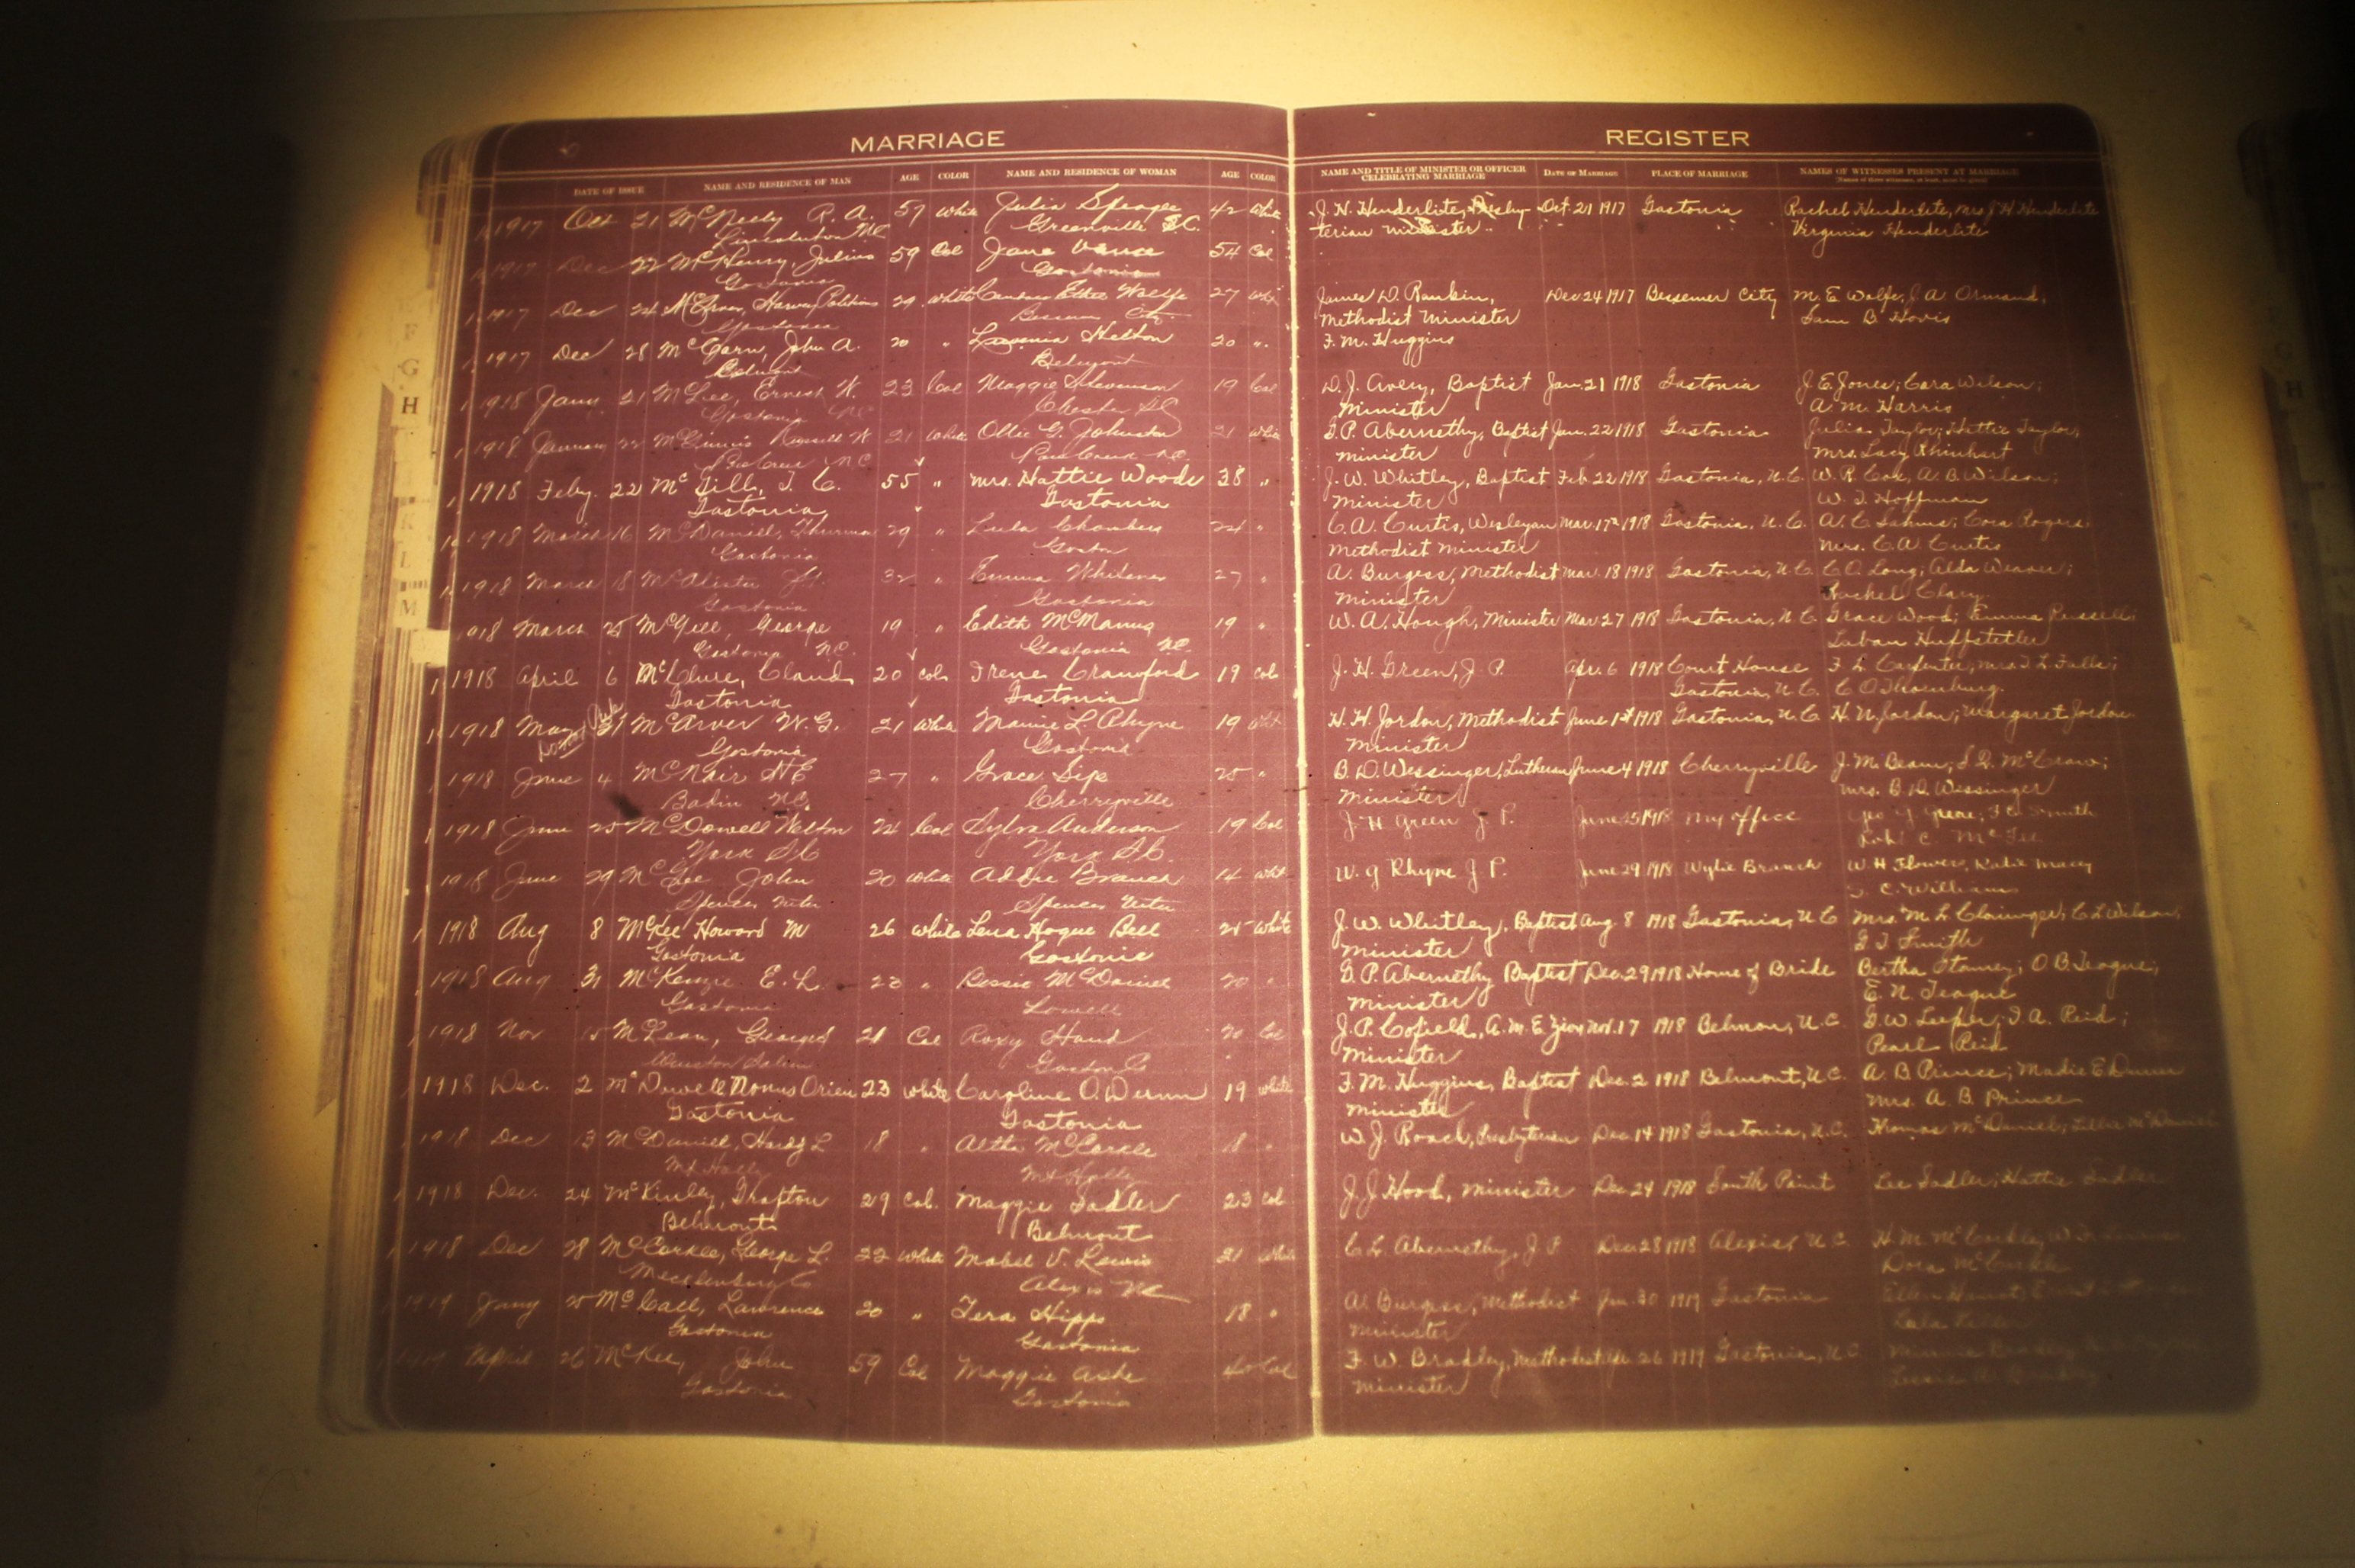 MARRIAGE
REGISTER
DATE OF ISSUE NAME AND RESIDENCE OF MAN AGE COLOR NAME AND RESIDENCE OF WOMAN AGE COLOR
NAME AND TITLE OF MINISTER OR OFFICER CELEBRATING MARRIAGE DATE OF MARRIAGE PLACE OF MARRIAGE NAMES OF WITNESSES PRESENT AT MARRIAGE
1917 Oct 21 McNeely R. A. 57 White Julia 42 White J. H. Henderlite, Presby Oct. 21 1917 Gastonia Rachel Henderlite, Mrs J H Henderlite
Lincolnton NC Greenville S.C. terian Minister Virginia Henderlite
1917 Dec 22 McHenry, Julius 59 Col Jane Vance 54 Col
Gastonia Gastonia
1917 Dec 24 Harvey 29 White Wolfe 27 White James D. Rankin, Dec 24 1917 Bessemer City M. E Wolfe, J A Ormand,
Gastonia Bessemer City Methodist Minister Sam B Hovis
1917 Dec 28 McCarn, John A. 20 " Helton 20 " F. M. Huggins
Belmont Belmont
1918 Jany 21 McLee, Ernest W. 23 Col Maggie Stevenson 19 Col D. J. Avery, Baptist Jan. 21 1918 Gastonia J. E. Jones; Cara Wilson;
Gastonia NC Chester SC Minister A. M. Harris
1918 January 22 McGinnis Russell W 21 White Ollie G. Johnston 21 White G. P. Abernethy, Baptist Jan. 22 1918 Gastonia Julia Taylor; Hattie Taylor,
NC NC Minister Mrs. Lacy Rhinhart
1918 Feby. 22 McGill, T. C. 55 " Mrs. Hattie Woods 38 " J. W. Whitley, Baptist Feb 22 1918 Gastonia, N.C. W. R. Cox, A. B. Wilson;
Gastonia Gastonia Minister W. T. Hoffman
1918 March 16 McDaniel, Thurman 29 " Lula Chambers 24 " C. A. Curtis, Wesleyan Mar. 17 1918 Gastonia, N.C. A. C. Cora Rogers,
Gastonia Gaston Methodist Minister Mrs. C. A. Curtis
1918 March 18 McAlister 32 " Emma Whitener 27 " A. Burgess, Methodist Mar. 18 1918 Gastonia, N C C. O. Long; Alda Weaver;
Gastonia Gastonia Minister Rachel Clary
1918 March 25 McGill, George 19 " Edith McManus 19 " W. A. Hough, Minister Mar 27 1918 Gastonia, N. C. Grace Wood; Emma Russell;
Gastonia NC. Gastonia NC. Laban Huffstetler
1918 April 6 McClure, Claud 20 col Irene Crawford 19 col J. H. Green, J. P. Apr. 6 1918 Court House F. L. Carpenter, Mrs T. L. Falls;
Gastonia Gastonia Gastonia, N.C. C O Thornburg.
1918 May 31 McArver W. G. 21 White Mamie L. Rhyne 19 White H. H. Jordon, Methodist June 1st 1918 Gastonia, N.C H. N. Jordon; Margaret Jordon
Gastonia Gastonia Minister
1918 June 4 McNair H E 27 " Grace Sip 25 " B. D. Wessinger, Lutheran June 4 1918 Cherryville J. M. Beam; McCraw;
Badin NC. Cherryville Minister Mrs. B. D. Wessinger
1918 June 25 McDowell Walton 24 Col Sylva Anderson 19 Col J. H Green J P. June 25 1918 My office Geo Smith
York S.C York S.C. Robt C. McFee
1918 June 29 McGee John 20 White Addie Branch 14 White W. G Rhyne J P. June 29 1918 Wylie Branch W. H Flowers, Katie Macey
Spencer Spencer C. Williams
1918 Aug 8 McKee Howard M 26 White Lena Hogue Bell 25 White J. W. Whitley, Baptist Aug 8 1918 Gastonia, N C Mrs. M. L Cloninger, C L Wilson,
Gastonia Gastonia Minister G T Smith
1918 Aug 31 McKenzie E. L. 23 " Bessie McDaniel 20 " G. P. Abernethy Baptist Dec. 29 1918 Home of Bride Bertha Stamey; O. B. Teague;
Gastonia Lowell Minister E. N. Teague
1918 Nov 15 McLean, George 21 Col Roxy Hand 20 Col J. P. Cofield, A. M. E Zion Nov. 17 1918 Belmont, N.C. G. W. Leeper; J. A. Reid;
Winston Salem Gaston Co Minister Pearl Reid
1918 Dec. 2 Orien 23 White Caroline O. 19 White F. M. Huggins, Baptist Dec. 2 1918 Belmont, N.C. A. B Prince; Madie E
Gastonia Gastonia Minister Mrs. A. B. Prince
1918 Dec 13 McDaniel, Hardy L 18 " McCorkle 18 " W. J. Roach, Presbyterian Dec 14 1918 Gastonia, N.C. Thomas McDaniel, Lillie McDaniel
Mt Holly Mt Holly
1918 Dec. 24 McKinley, Grafton 29 Col. Maggie Sadler 23 Col J. J Hood, Minister Dec 24 1918 South Point Lee Sadler; Hattie Sadler
Belmont Belmont
1918 Dec 28 McCorkle, George L. 22 White Mabel V. Lewis 21 White C L Abernethy, J. P Dec 28 1918 Alexis, N C. H. M. McCorkle,
Mecklenburg Co Alexis NC Dora McCorkle
1919 Jany 25 McCall, Lawrence 20 " Tera Hipps 18 " A. Burgess, Methodist Jan. 30 1919 Gastonia
Gastonia Gastonia Minister
April 26 McKee, John 59 Col Maggie Ashe 40 Col F. W. Bradley, Methodist Apr. 26 1919 Gastonia, N.C. Minnie Bradley
Gastonia Gastonia Minister
F
G
H
K
L
M